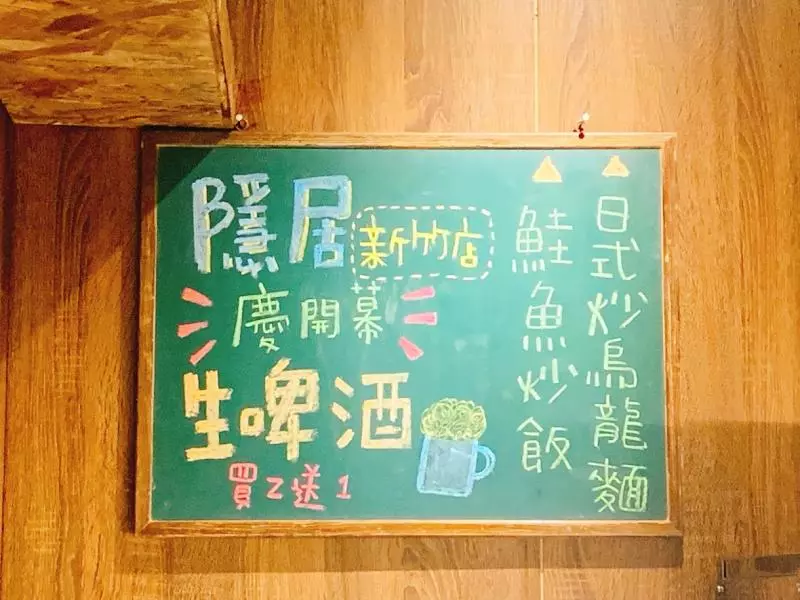 隱居 新竹店
慶開幕
生啤酒
買2送1
日式炒烏龍麵
鮭魚炒飯